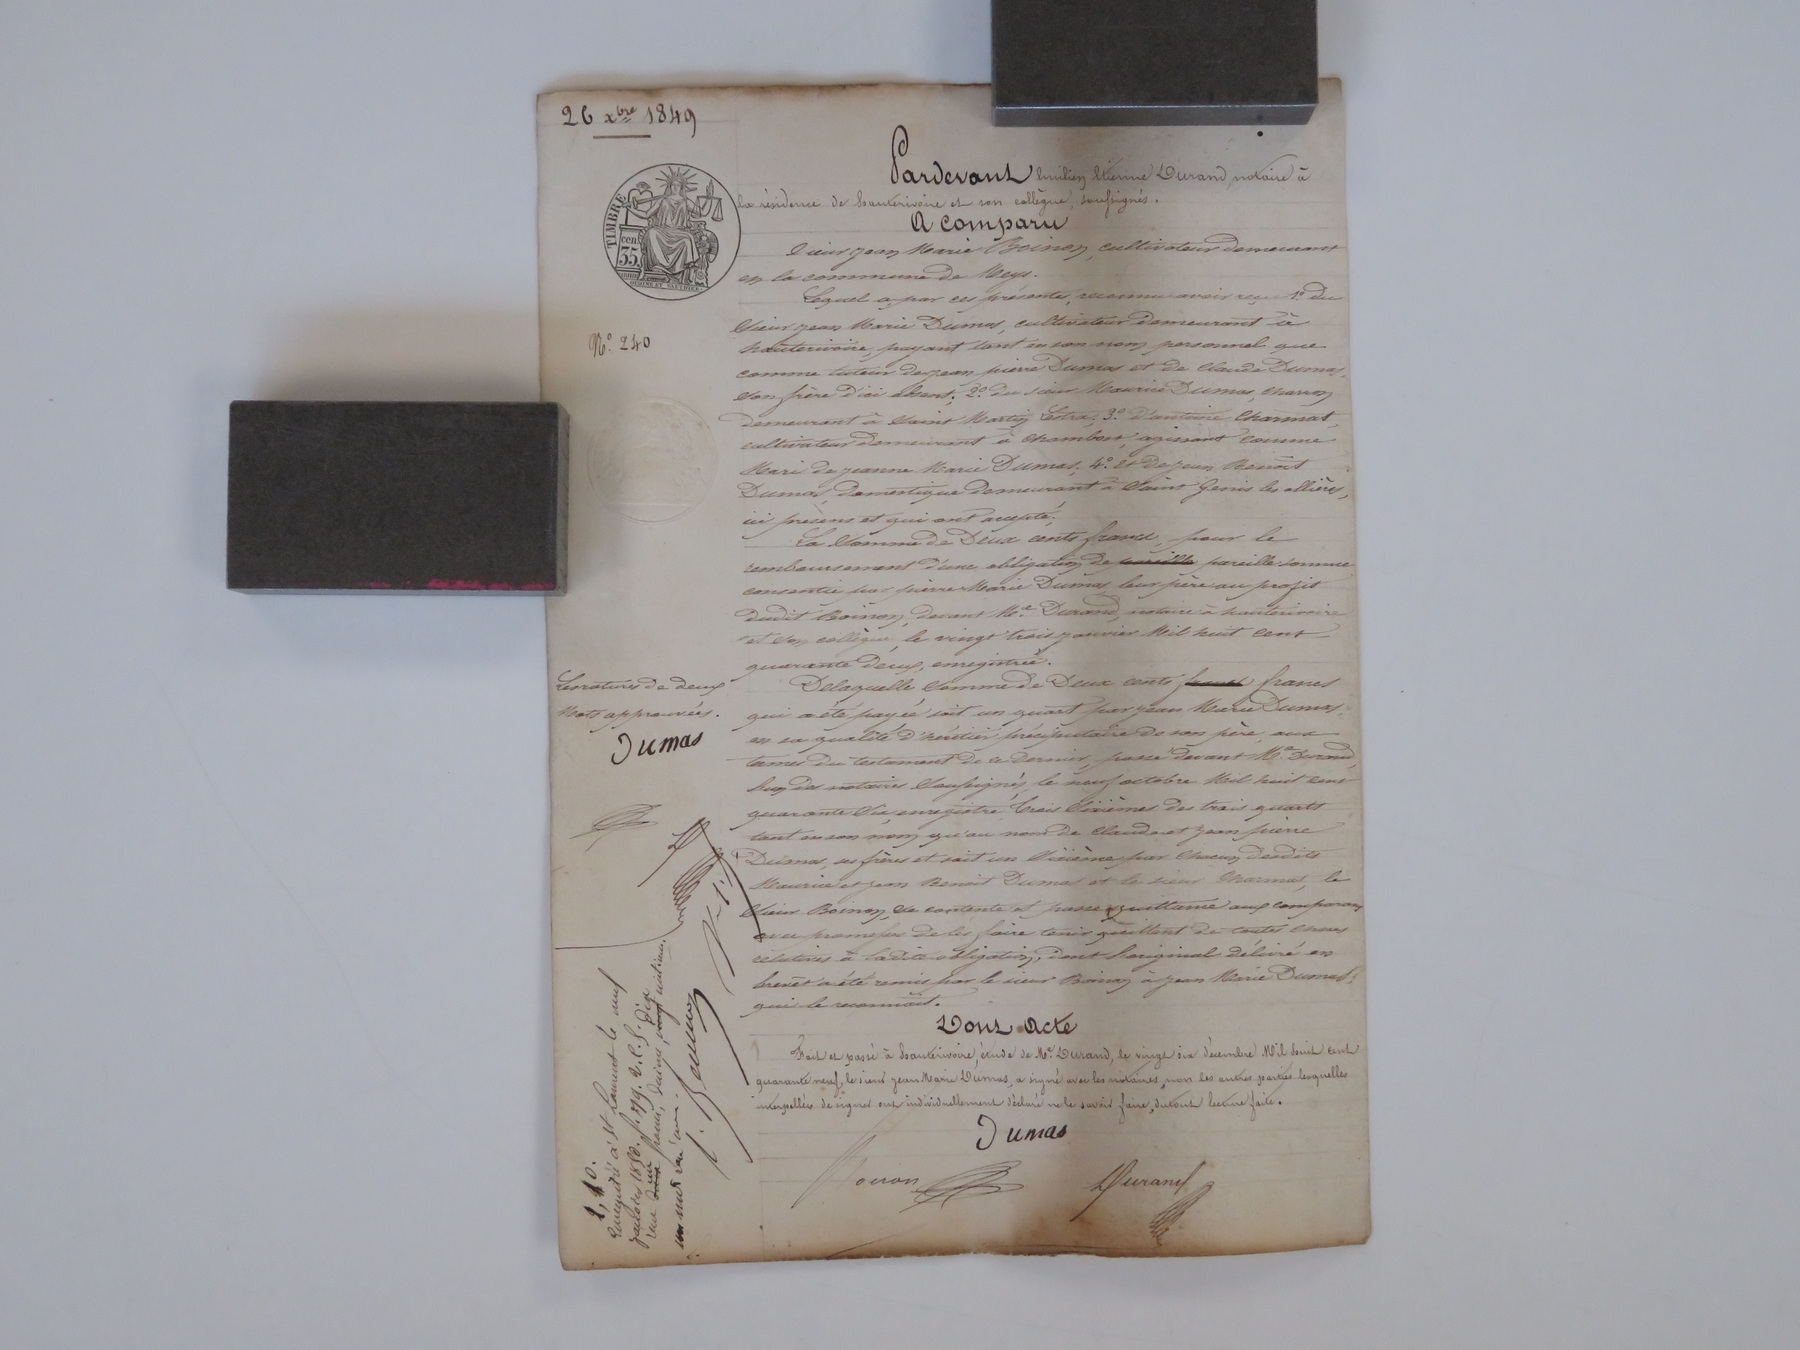 26 xbre 1849
TIMBRE
cen
35
N° 240
Pardevant Emilien Etienne Durand, notaire à
la résidence de hauterivoire et son collègue, soussignés.
A comparu
Sieur jean Marie Boinon, cultivateur demeurant
en la commune de Meys.
Lequel a, par ces présentes, reconnu avoir reçu 1° du
Sieur jean Marie Dumas, cultivateur demeurant à
hauterivoire, payant tant en son nom personnel que
comme tuteur de jean pierre Dumas et de Claude Dumas,
son frère d'ici absent, 2° du sieur Maurice Dumas, charron
demeurant à Saint Martin Lestra, 3° d'antoine Charmat,
cultivateur demeurant à chambost, agissant comme
Mari de jeanne Marie Dumas, 4° et de jean Benoit
Dumas, domestique demeurant à Saint Genis les ollières,
ici présens et qui ont accepté,
La Somme de Deux cents francs, pour le
remboursement d'une obligation de pareille somme
consentie par pierre Marie Dumas, leur père au profit
dudit Boinon, devant Me Durand, notaire à hauterivoire
et son collègue, le vingt trois janvier Mil huit cent
quarante deux, enregistrée.
De laquelle Somme de Deux cents francs
qui a été payée soit un quart par jean Marie Dumas,
en sa qualité d'héritier préciputaire de son père, aux
termes du testament de ce dernier, passé devant Me Durand,
l'un des notaires soussignés, le neuf octobre Mil huit cent
quarante Six, enregistré, trois Sixièmes des trois quarts
tant en son nom qu'au nom de Claude et jean pierre
Dumas, ses frères et soit un Sixième par chacun desdits
Maurice et jean Benoit Dumas et le sieur Charmat, le
Sieur Boinon, se contente et passe quittance aux comparans
avec promesse de les faire tenir quittent de toutes choses
relatives à ladite obligation, dont l'original délivré en
brevet a été remis par le sieur Boinon à jean Marie Dumas,
qui le reconnait.
Dont Acte
Fait et passé à hauterivoire, étude de Me Durand, le vingt six décembre Mil huit cent
quarante neuf, le sieur jean Marie Dumas, a signé avec les notaires, non les autres parties lesquelles
interpellées de signer ont individuellement déclaré ne le savoir faire, du tout lecture faite.
Dumas
Durand
Les ratures de deux
Mots approuvées.
Dumas
Enregistré à St Laurent le neuf
janvier 1850. f. 79. V. C. 5. Reçu
un franc, décime, dix centimes.